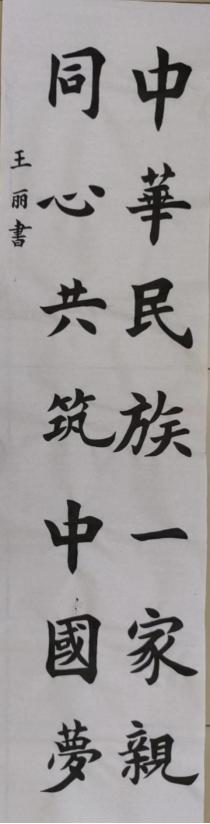 中華民族一家親
同心共筑中國夢
王丽書